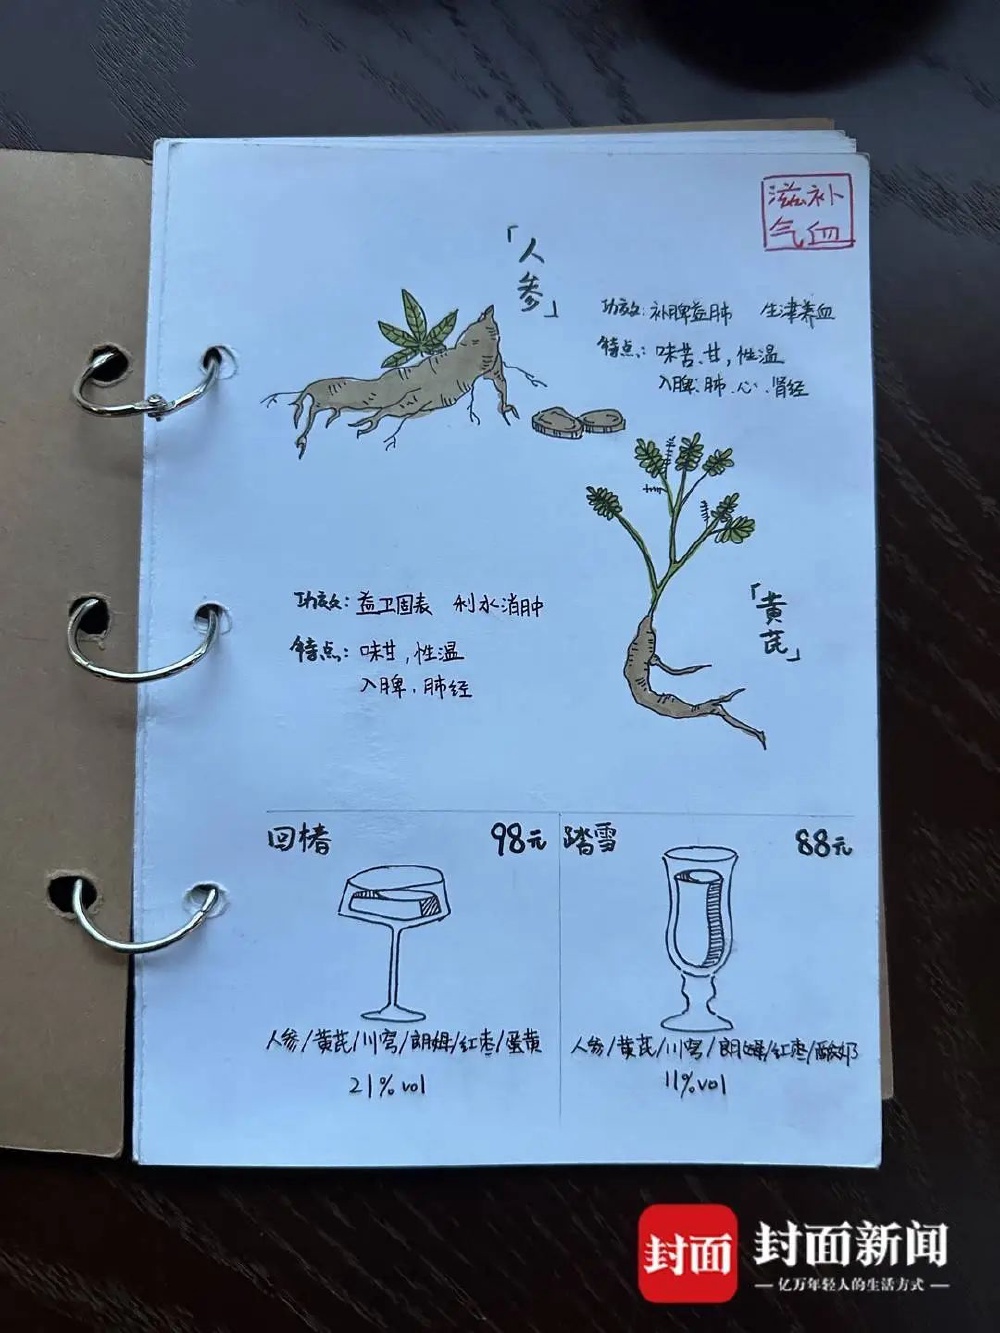 滋补
气血
「人参」
功效: 补脾益肺 生津养血
特点: 味苦、甘，性温
入脾、肺、心、肾经
「黄芪」
功效: 益卫固表 利水消肿
特点: 味甘，性温
入脾、肺经
回椿 98元
踏雪 88元
人参/黄芪/川芎/朗姆/红枣/蛋黄
21%vol
人参/黄芪/川芎/朗姆/红枣/酸奶
11%vol
封面
封面新闻
亿万年轻人的生活方式